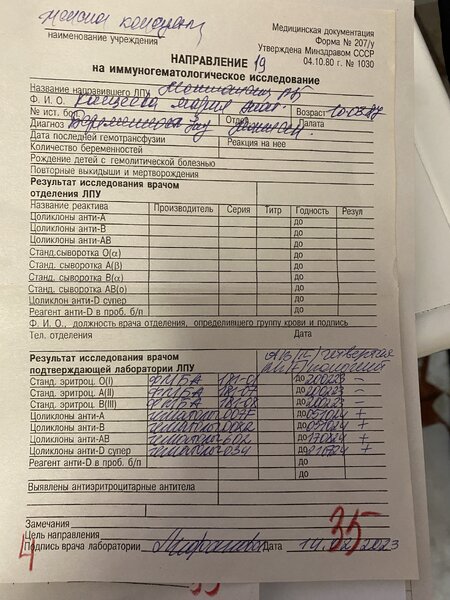 Женская консульт
наименование учреждения
Медицинская документация
Форма № 207/у
Утверждена Минздравом СССР
04.10.80 г. № 1030
НАПРАВЛЕНИЕ 19
на иммуногематологическое исследование
Название направившего ЛПУ
Ф. И. О. Мария Возраст
№ ист. бол. Отдел. Палата
Диагноз Беременность
Дата последней гемотрансфузии Реакция на нее
Количество беременностей
Рождение детей с гемолитической болезнью
Повторные выкидыши и мертворождения
Результат исследования врачом
отделения ЛПУ
Название реактива Производитель Серия Титр Годность Резул
Цоликлоны анти-А до
Цоликлоны анти-В до
Цоликлоны анти-АВ до
Станд.сыворотка О(α) до
Станд. сыворотка А(β) до
Станд. сыворотка В(α) до
Станд. сыворотка АВ(о) до
Цоликлон анти-D супер до
Реагент анти-D в проб. б/п до
Ф. И. О., должность врача отделения, определившего группу крови и подпись
Тел. отделения Дата
Результат исследования врачом АВ (IV) четвертая
подтверждающей лаборатории ЛПУ
Станд. эритроц. О(I) ФМБА до 200223 –
Станд. эритроц. А(II) ФМБА до 200223 –
Станд. эритроц. В(III) ФМБА до 200223 –
Цоликлоны анти-А гематолог 007F до 051024 +
Цоликлоны анти-В гематолог до 051024 +
Цоликлоны анти-АВ гематолог 602 до 170824 +
Цоликлоны анти-D супер гематолог 034 до +
Реагент анти-D в проб. б/п до
до
Выявлены антиэритроцитарные антитела
Замечания
Цель направления 35
Подпись врача лаборатории Дата 14.02.2023
4